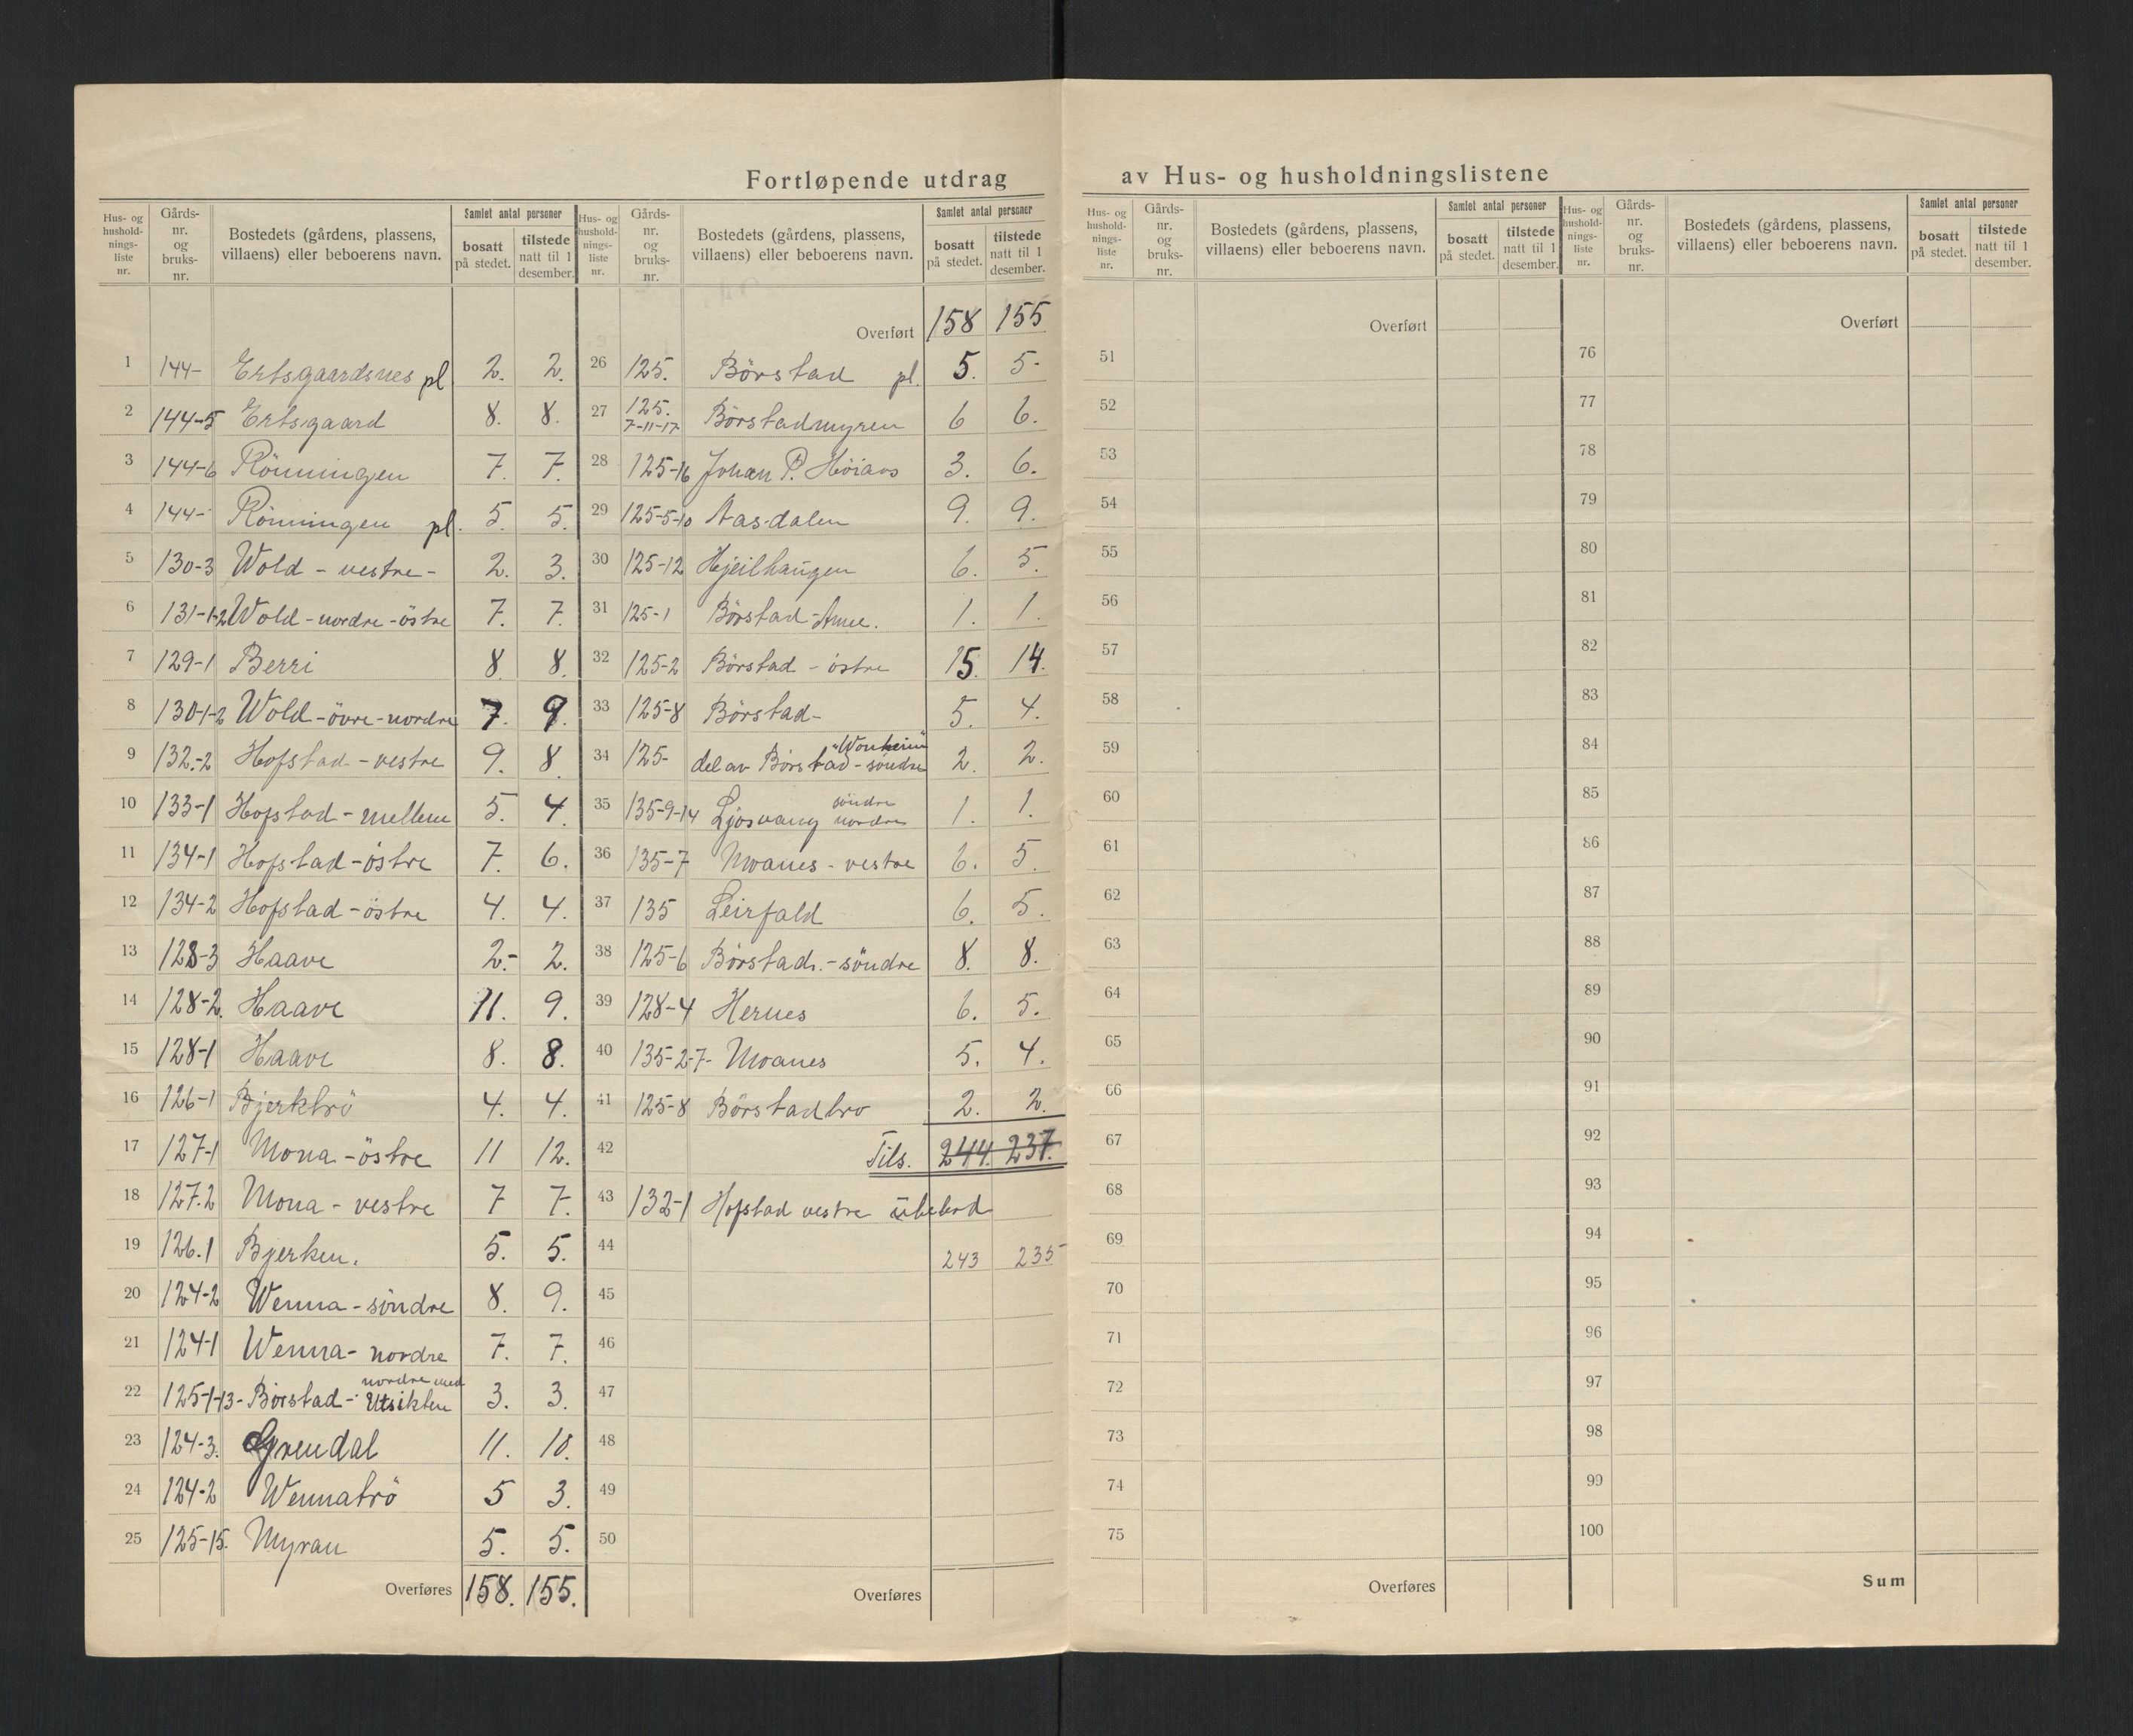 Fortløpende utdrag av Hus- og husholdningslistene
Hus- og hushold-nings-liste nr. Gårds-nr. og bruks-nr. Bostedets (gårdens, plassens, villaens) eller beboerens navn. Samlet antal personer bosatt på stedet. tilstede natt til 1 desember.
1 144- Ertsgaardsnes pl 2. 2.
2 144-5 Ertsgaard 8. 8.
3 144-6 Rönningen 7. 7.
4 144- Rönningen pl. 5. 5.
5 130-3 Wold - vestre - 2. 3.
6 131-1-2 Wold - nordre - östre 7. 7.
7 129-1 Berri 8. 8.
8 130-1-2 Wold - övre - nordre 7. 9.
9 132-2 Hofstad - vestre 9. 8
10 133-1 Hofstad - mellem 5. 4.
11 134-1 Hofstad - östre 7. 6.
12 134-2 Hofstad - östre 4. 4.
13 128-3 Haave 2.- 2.
14 128-2. Haave 11. 9.
15 128-1 Haave 8. 8.
16 126-1 Bjerktrö 4. 4.
17 127-1 Mona - östre 11 12.
18 127.2 Mona - vestre 7 7.
19 126.1 Bjerken. 5. 5.
20 124-2 Wenna - söndre 8. 9.
21 124-1 Wenna - nordre 7. 7.
22 125-1-13- Börstad - nordre med Utsikten 3. 3.
23 124-3. Grendal 11. 10.
24 124-2 Wennatrö 5 3.
25 125-15. Myran 5. 5.
Overføres 158. 155.
Hus- og hushold-nings-liste nr. Gårds-nr. og bruks-nr. Bostedets (gårdens, plassens, villaens) eller beboerens navn. Samlet antal personer bosatt på stedet. tilstede natt til 1 desember.
Overført 158 155
26 125. Börstad pl. 5. 5-
27 125. 7-11-17 Börstadmyren 6 6.
28 125-16 Johan P. 3. 6.
29 125-5-10 Aasdalen 9. 9.
30 125-12 Hjeilhaugen 6. 5.
31 125-1 Börstad - 1. 1.
32 125-2 Börstad - östre 15. 14.
33 125-8 Börstad - 5. 4.
34 125- del av Börstad - söndre "Wonheim" 2. 2.
35 135-9-14 Ljosvang söndre nordre 1. 1.
36 135-7 Moanes - vestre 6. 5.
37 135 Leirfald 6. 5.
38 125-6 Börstad. - söndre 8. 8.
39 128-4 Hernes 6. 5.
40 135-2-7- Moanes 5. 4.
41 125-8 Börstadbro 2. 2.
42 Tils. 244. 237.
43 132-1 Hofstad vestre ubebod
44 243 235
45
46
47
48
49
50
Overføres
Hus- og hushold-nings-liste nr. Gårds-nr. og bruks-nr. Bostedets (gårdens, plassens, villaens) eller beboerens navn. Samlet antal personer bosatt på stedet. tilstede natt til 1 desember.
Overført
51
52
53
54
55
56
57
58
59
60
61
62
63
64
65
66
67
68
69
70
71
72
73
74
75
Overføres
Hus- og hushold-nings-liste nr. Gårds-nr. og bruks-nr. Bostedets (gårdens, plassens, villaens) eller beboerens navn. Samlet antal personer bosatt på stedet. tilstede natt til 1 desember.
Overført
76
77
78
79
80
81
82
83
84
85
86
87
88
89
90
91
92
93
94
95
96
97
98
99
100
Sum